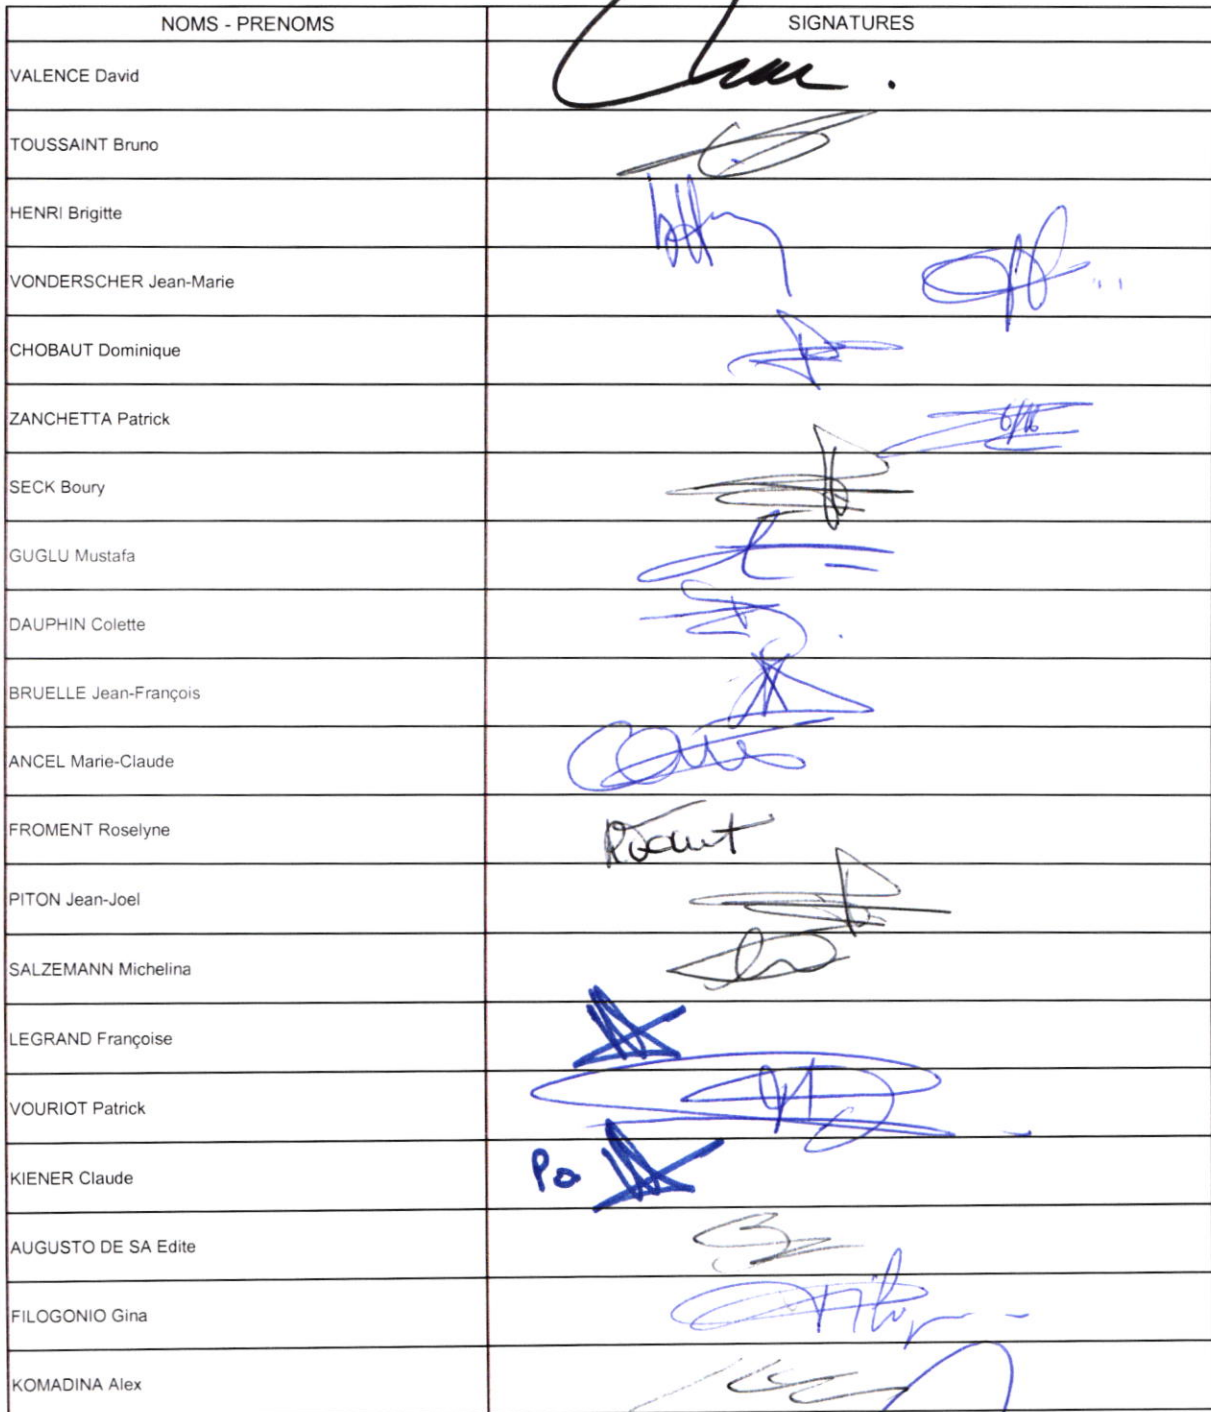 NOMS - PRENOMS SIGNATURES
VALENCE David
TOUSSAINT Bruno
HENRI Brigitte
VONDERSCHER Jean-Marie
CHOBAUT Dominique
ZANCHETTA Patrick
SECK Boury
GUGLU Mustafa
DAUPHIN Colette
BRUELLE Jean-François
ANCEL Marie-Claude
FROMENT Roselyne
PITON Jean-Joel
SALZEMANN Michelina
LEGRAND Françoise
VOURIOT Patrick
KIENER Claude Po
AUGUSTO DE SA Edite
FILOGONIO Gina
KOMADINA Alex